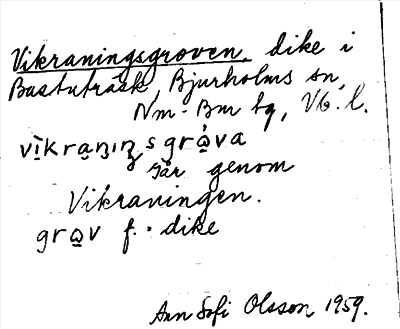 Vikraningsgroven, dike i
Bastuträsk, Bjurholms sn,
Nm-Bm tg, Vb. l.
vìkraṇıŋsgrà̱va
går genom
Vikraningen.
gra̱v f. = dike
Ann Sofi Olsson 1959.